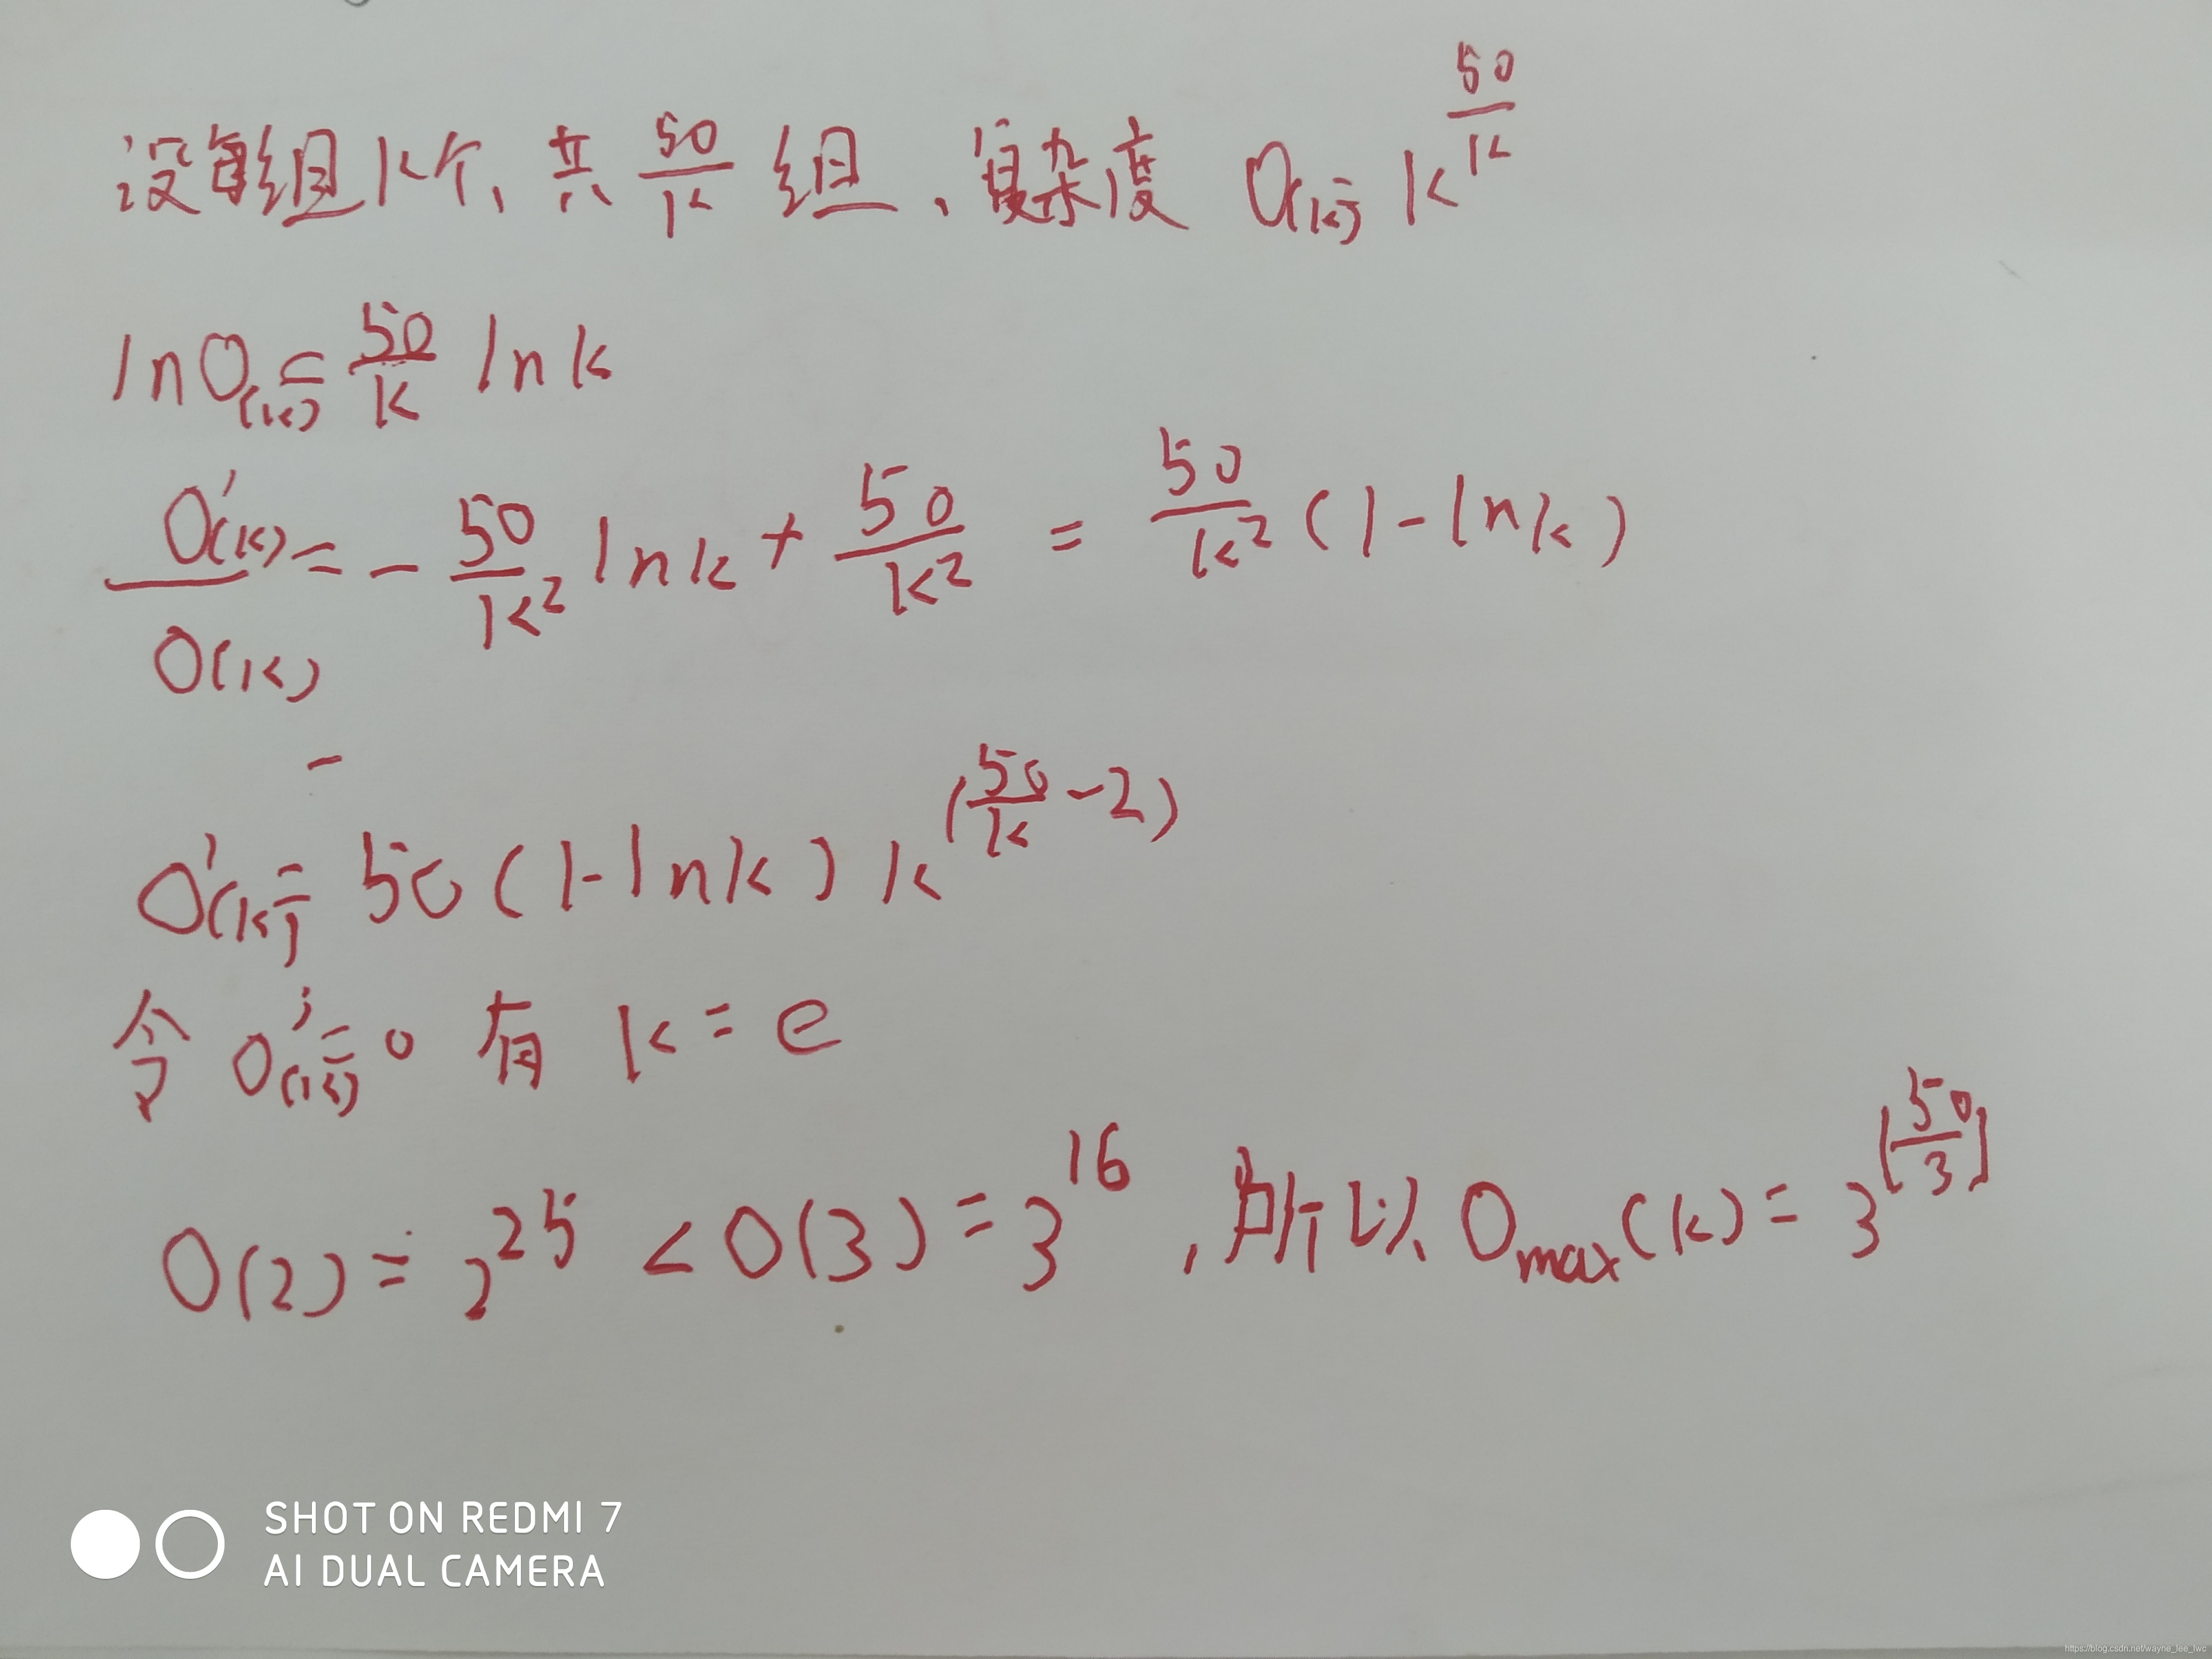 设每组k个、共 50/k 组、复杂度 O(k)= k^(50/k)
lnO(k) = 50/k lnk
O'(k)/O(k) = - 50/k² lnk + 50/k² = 50/k² (1-lnk)
O'(k) = 50(1-lnk) k^(50/k -2)
令 O'(k)=0 有 k=e
O(2) = 2^25 < O(3) = 3^16 , 所以 Omax(k) = 3^[50/3]
SHOT ON REDMI 7
AI DUAL CAMERA
https://blog.csdn.net/wayne_lee_lwc